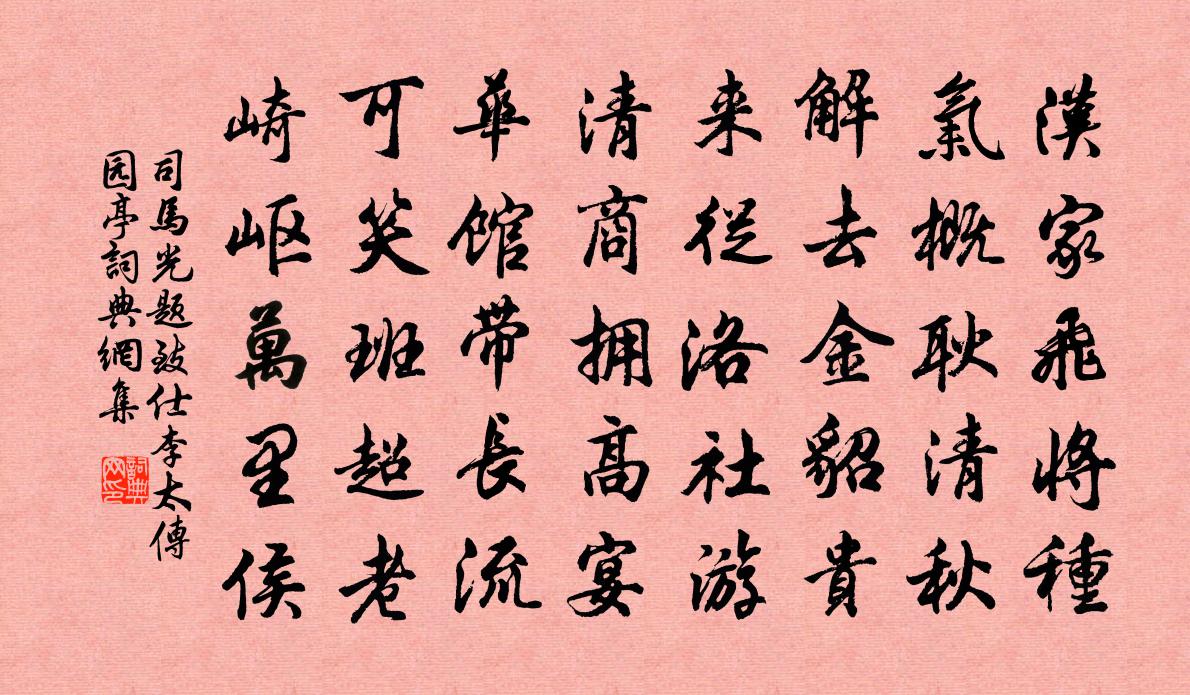 漢家飛將種
氣概耿清秋
解去金貂貴
来從洛社游
清商拥高宴
華馆带長流
可笑班超老
崎岖萬里侯
司馬光题致仕李太傅
园亭詞典網集
詞典網印